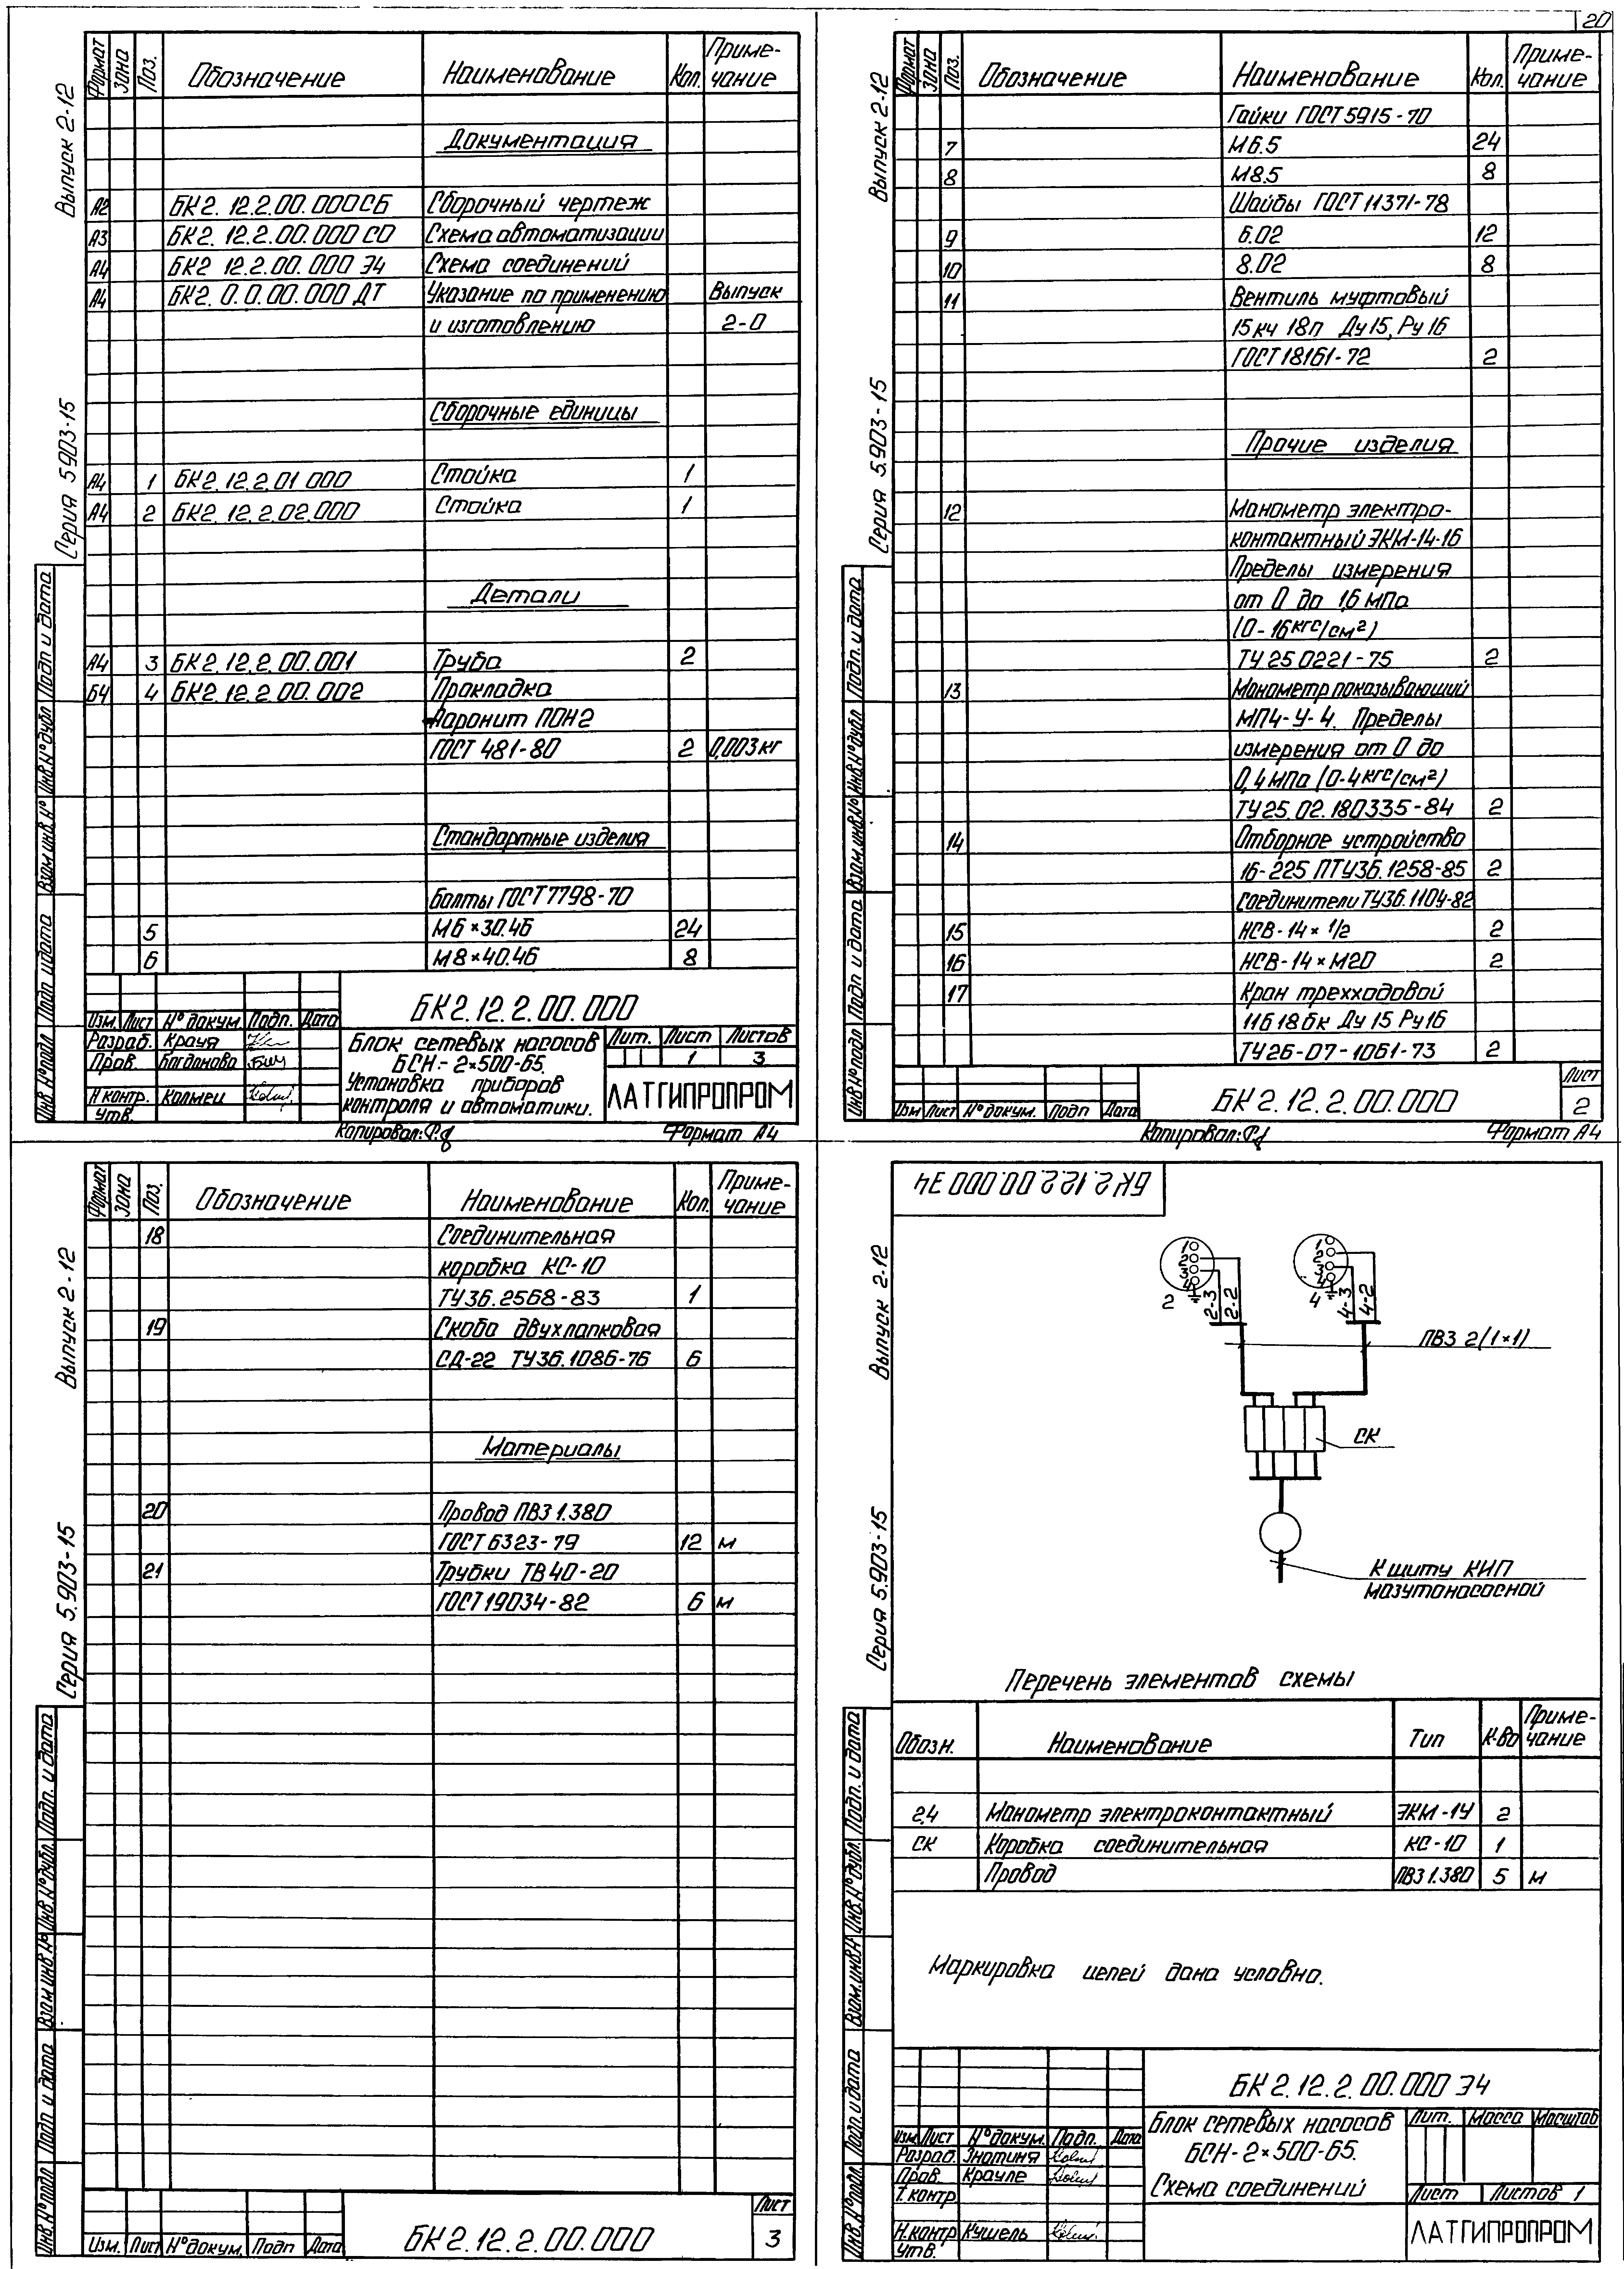 20
Выпуск 2-12
Серия 5.903-15
Формат Зона Поз. Обозначение Наименование Кол. Приме-
чание
Документация
А2 БК2.12.2.00.000СБ Сборочный чертеж
А3 БК2.12.2.00.000 СО Схема автоматизации
А4 БК2 12.2.00.000 Э4 Схема соединений
А4 БК2.0.0.00.000 ДТ Указание по применению Выпуск
и изготовлению 2-0
Сборочные единицы
А4 1 БК2.12.2.01.000 Стойка 1
А4 2 БК2.12.2.02.000 Стойка 1
Детали
А4 3 БК2.12.2.00.001 Труба 2
Б4 4 БК2.12.2.00.002 Прокладка
Паронит ПОН2
ГОСТ 481-80 2 0,003кг
Стандартные изделия
Болты ГОСТ7798-70
5 М6×30.46 24
6 М8×40.46 8
Инв.№подл Подп и дата Взам.инв.№ Инв.№дубл Подп и дата
Изм. Лист №докум Подп. Дата
Разраб. Крауя
Пров. Богданова
Н контр. Калмец
Утв.
БК2.12.2.00.000
Блок сетевых насосов
БСН-2×500-65.
Установка приборов
контроля и автоматики.
Лит. Лист Листов
1 3
ЛАТГИПРОПРОМ
Копировал: Формат А4
Выпуск 2-12
Серия 5.903-15
Формат Зона Поз. Обозначение Наименование Кол. Приме-
чание
Гайки ГОСТ5915-70
7 М6.5 24
8 М8.5 8
Шайбы ГОСТ11371-78
9 6.02 12
10 8.02 8
11 Вентиль муфтовый
15кч 18п Ду15, Ру16
ГОСТ18161-72 2
Прочие изделия
12 Манометр электро-
контактный ЭКМ-14-16
Пределы измерения
от 0 до 1,6 мПа
(0-16кгс/см²)
ТУ25.0221-75 2
13 Манометр показывающий
МП4-У-4. Пределы
измерения от 0 до
0,4мПа (0-4кгс/см²)
ТУ25.02.180335-84 2
14 Отборное устройство
16-225 ПТУ36.1258-85 2
Соединители ТУ36.1104-82
15 НСВ-14×1/2 2
16 НСВ-14×М20 2
17 Кран трехходовой
11б18бк Ду15 Ру16
ТУ26-07-1061-73 2
Инв.№подл Подп и дата Взам.инв.№ Инв.№дубл Подп. и дата
Изм Лист №докум. Подп Дата
БК2.12.2.00.000
Лист
2
Копировал: Формат А4
Выпуск 2-12
Серия 5.903-15
Формат Зона Поз. Обозначение Наименование Кол. Приме-
чание
18 Соединительная
коробка КС-10
ТУ36.2568-83 1
19 Скоба двухлапковая
СД-22 ТУ36.1086-76 6
Материалы
20 Провод ПВ3 1.380
ГОСТ6323-79 12 м
21 Трубки ТВ40-20
ГОСТ19034-82 6 м
Инв.№подл. Подп и дата Взам инв.№ Инв.№дубл. Подп. и дата
Изм. Лист №докум. Подп Дата
БК2.12.2.00.000
Лист
3
Выпуск 2-12
Серия 5.903-15
БК2.12.2.00.000 Э4
1 2 3 4
2 2-3 2-2
1 2 3 4
4 4-3 4-2
ПВ3 2(1×1)
СК
К щиту КИП
мазутонасосной
Перечень элементов схемы
Обозн. Наименование Тип К-во Приме-
чание
2,4 Манометр электроконтактный ЭКМ-1У 2
СК Коробка соединительная КС-10 1
Провод ПВ3 1.380 5 м
Маркировка цепей дана условно.
Инв.№подл. Подп. и дата Взам.инв.№ Инв.№дубл. Подп. и дата
Изм Лист №докум. Подп. Дата
Разраб. Знотиня
Пров. Крауле
Т.контр.
Н.контр Кушель
Утв.
БК2.12.2.00.000 Э4
Блок сетевых насосов
БСН-2×500-65.
Схема соединений
Лит. Масса Масштаб
Лист Листов 1
ЛАТГИПРОПРОМ